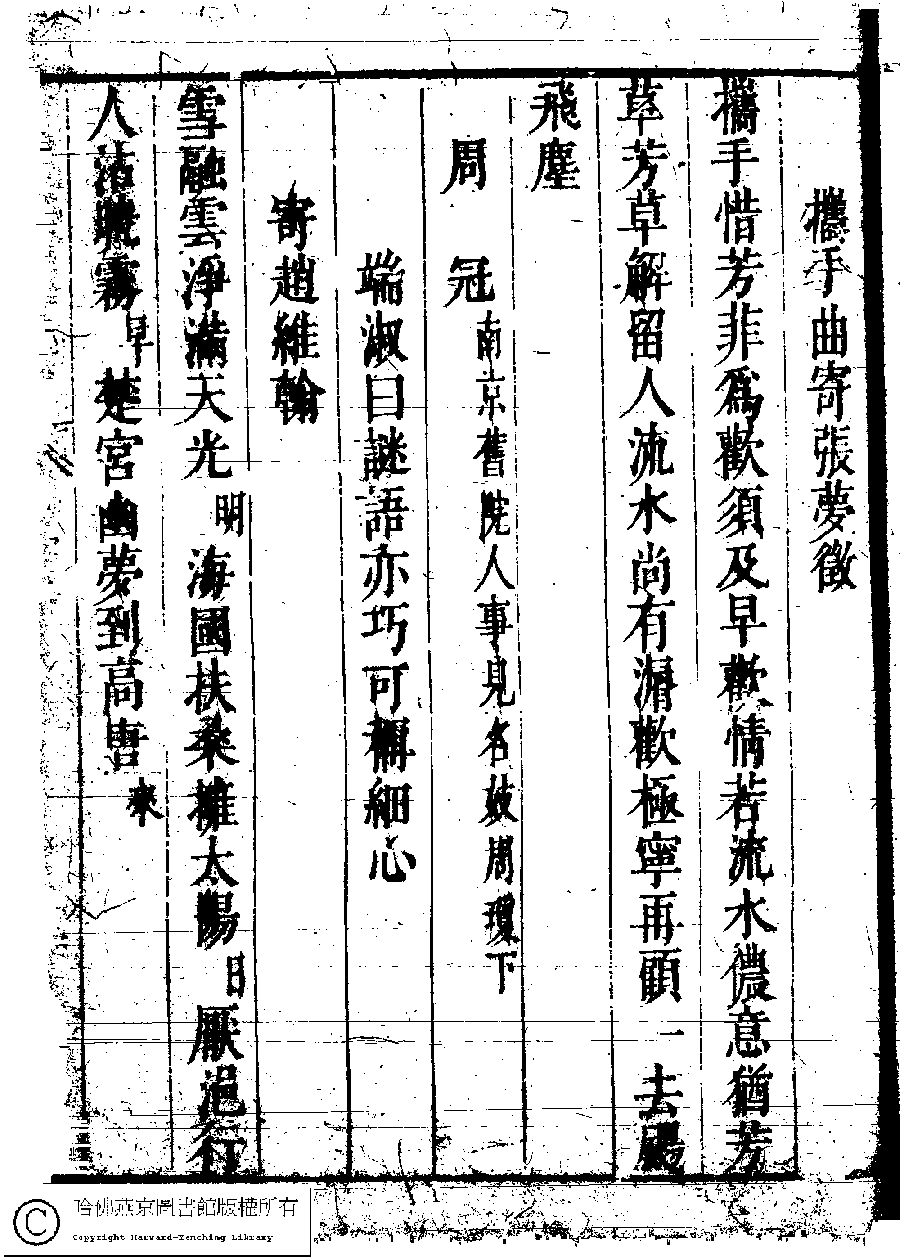 攜手曲寄張夢徵
攜手惜芳菲爲歡須及早歡情若流水儂意猶芳
草芳草解留人流水尚有漘歡極寧再顧一去颺
飛塵
周冠南京舊院人事見名妓周瓊下
端淑曰謎語亦巧可稱細心
寄趙維翰
雪融雲淨滿天光明海國扶桑擁太陽日厭浥行
人沾曉霧早楚宮幽夢到高唐來
哈佛燕京圖書館版權所有
Copyright Harvard-Yenching Library